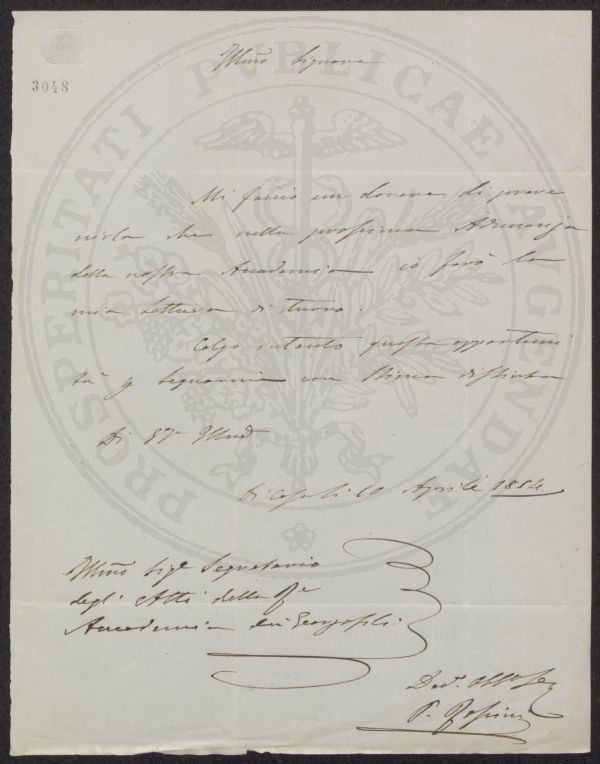 3048
PROSPERITATI PVBLICAE AVGENDAE
Illmo Signore
Mi faccio un dovere di preve
nirla che nella prossima Adunanza
della nostra Accademia io farò la
mia Lettura di turno.
Colgo intanto questa opportuni
tà p segnarmi con Stima distinta
Di Illma
Di Casa li 10 Aprile 1854
Illmo Sigr Segretario
degli Atti della
Accademia dei Georgofili
Dev. Obbo
P.